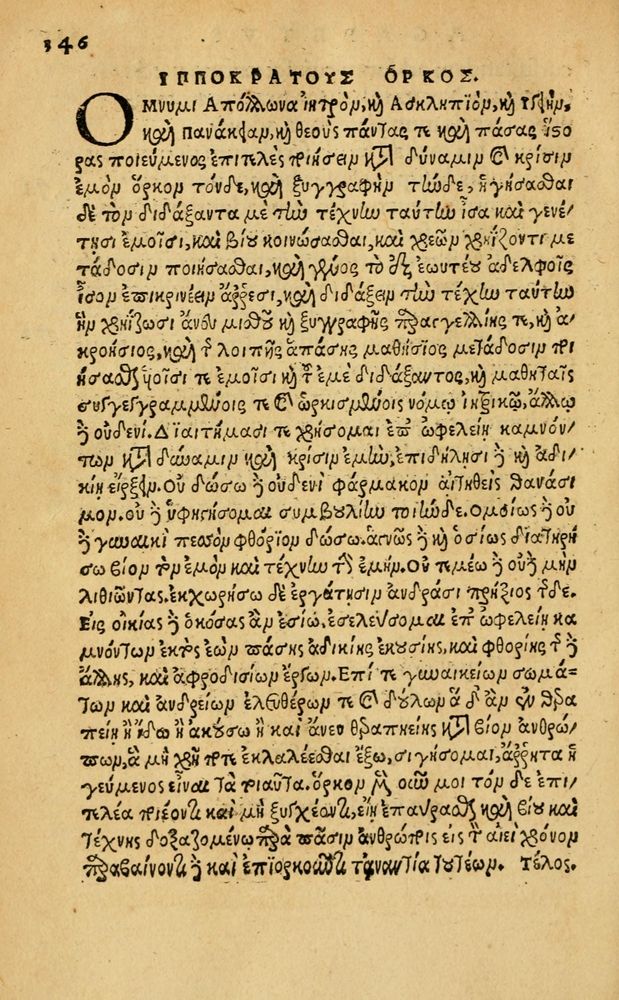 346
ΙΠΠΟΚΡΑΤΟΥΣ ΟΡΚΟΣ.
ΟΜΝΥΜΙ Απόλλωνα ἰητρὸν, καὶ Ασκληπιὸν, καὶ Υγείην,
καὶ Πανάκειαν, καὶ θεοὺς πάντας τε καὶ πάσας ἵστο
ρας ποιεύμενος ἐπιτελέα ποιήσειν κατὰ δύναμιν καὶ κρίσιν
ἐμὴν ὅρκον τόνδε, καὶ ξυγγραφὴν τήνδε, ἡγήσασθαι
δὲ τὸν διδάξαντα μὲ τὴν τέχνην ταύτην ἶσα καὶ γενέ/
τῃσι ἐμοῖσι, καὶ βίου κοινώσασθαι, καὶ χρεῶν χρηίζοντι με
τάδοσιν ποιήσασθαι, καὶ γένος τὸ ἐξ ἑωυτέου ἀδελφοῖς
ἶσον ἐπικρινέειν ἄρρεσι, καὶ διδάξειν τὴν τέχνην ταύτην
ἢν χρηίζωσι ἄνευ μισθοῦ καὶ ξυγγραφῆς παραγγελίης τε, καὶ ἀ/
κροήσιος, καὶ τῆς λοιπῆς ἁπάσης μαθήσιος μετάδοσιν ποι
ήσασθαι υἱοῖσι τε ἐμοῖσι καὶ τοῦ ἐμὲ διδάξαντος, καὶ μαθηταῖς
συγγεγραμμένοις τε καὶ ὡρκισμένοις νόμῳ ἰητρικῷ, ἄλλῳ
δὲ οὐδενί. Διαιτήμασι τε χρήσομαι ἐπ' ὠφελείῃ καμνόν/
των κατὰ δύναμιν καὶ κρίσιν ἐμὴν, ἐπὶ δηλήσι δὲ καὶ ἀδι/
κίῃ εἴρξειν. Οὐ δώσω δὲ οὐδενὶ φάρμακον αἰτηθεὶς θανάσι
μον. οὐ δὲ ὑφηγήσομαι συμβουλίην τοιήνδε. Ομοίως δὲ οὐ
δὲ γυναικὶ πεσσὸν φθόριον δώσω. ἁγνῶς δὲ καὶ ὁσίως διατηρή
σω βίον τὸν ἐμὸν καὶ τέχνην τὴν ἐμήν. Οὐ τεμέω δὲ οὐδὲ μὴν
λιθιῶντας. ἐκχωρήσω δὲ ἐργάτῃσιν ἀνδράσι πρήξιος τῆσδε.
Εἰς οἰκίας δὲ ὁκόσας ἂν ἐσίω, ἐσελεύσομαι ἐπ' ὠφελείῃ κα
μνόντων ἐκτὸς ἐὼν πάσης ἀδικίης ἑκουσίης, καὶ φθορίης τῆς δὲ
ἄλλης, καὶ ἀφροδισίων ἔργων. Επί τε γυναικείων σωμά/
των καὶ ἀνδρείων ἐλευθέρων τε καὶ δούλων ἃ δ' ἂν ἐν θερα
πείῃ ἢ ἴδω ἢ ἀκούσω ἢ καὶ ἄνευ θεραπηείης κατὰ βίον ἀνθρώ/
πων, ἃ μὴ χρή ποτε ἐκλαλέεσθαι ἔξω, σιγήσομαι, ἄρρητα ἡ
γεύμενος εἶναι τὰ τοιαῦτα. ὅρκον μὲν οὖν μοι τόνδε ἐπι/
τελέα ποιέοντι καὶ μὴ ξυγχέοντι, εἴη ἐπαύρασθαι καὶ βίου καὶ
τέχνης δοξαζομένῳ παρὰ πᾶσιν ἀνθρώποις εἰς τὸν αἰεὶ χρόνον
παραβαίνοντι δὲ καὶ ἐπιορκοῦντι τἀναντία τουτέων. Τέλος.